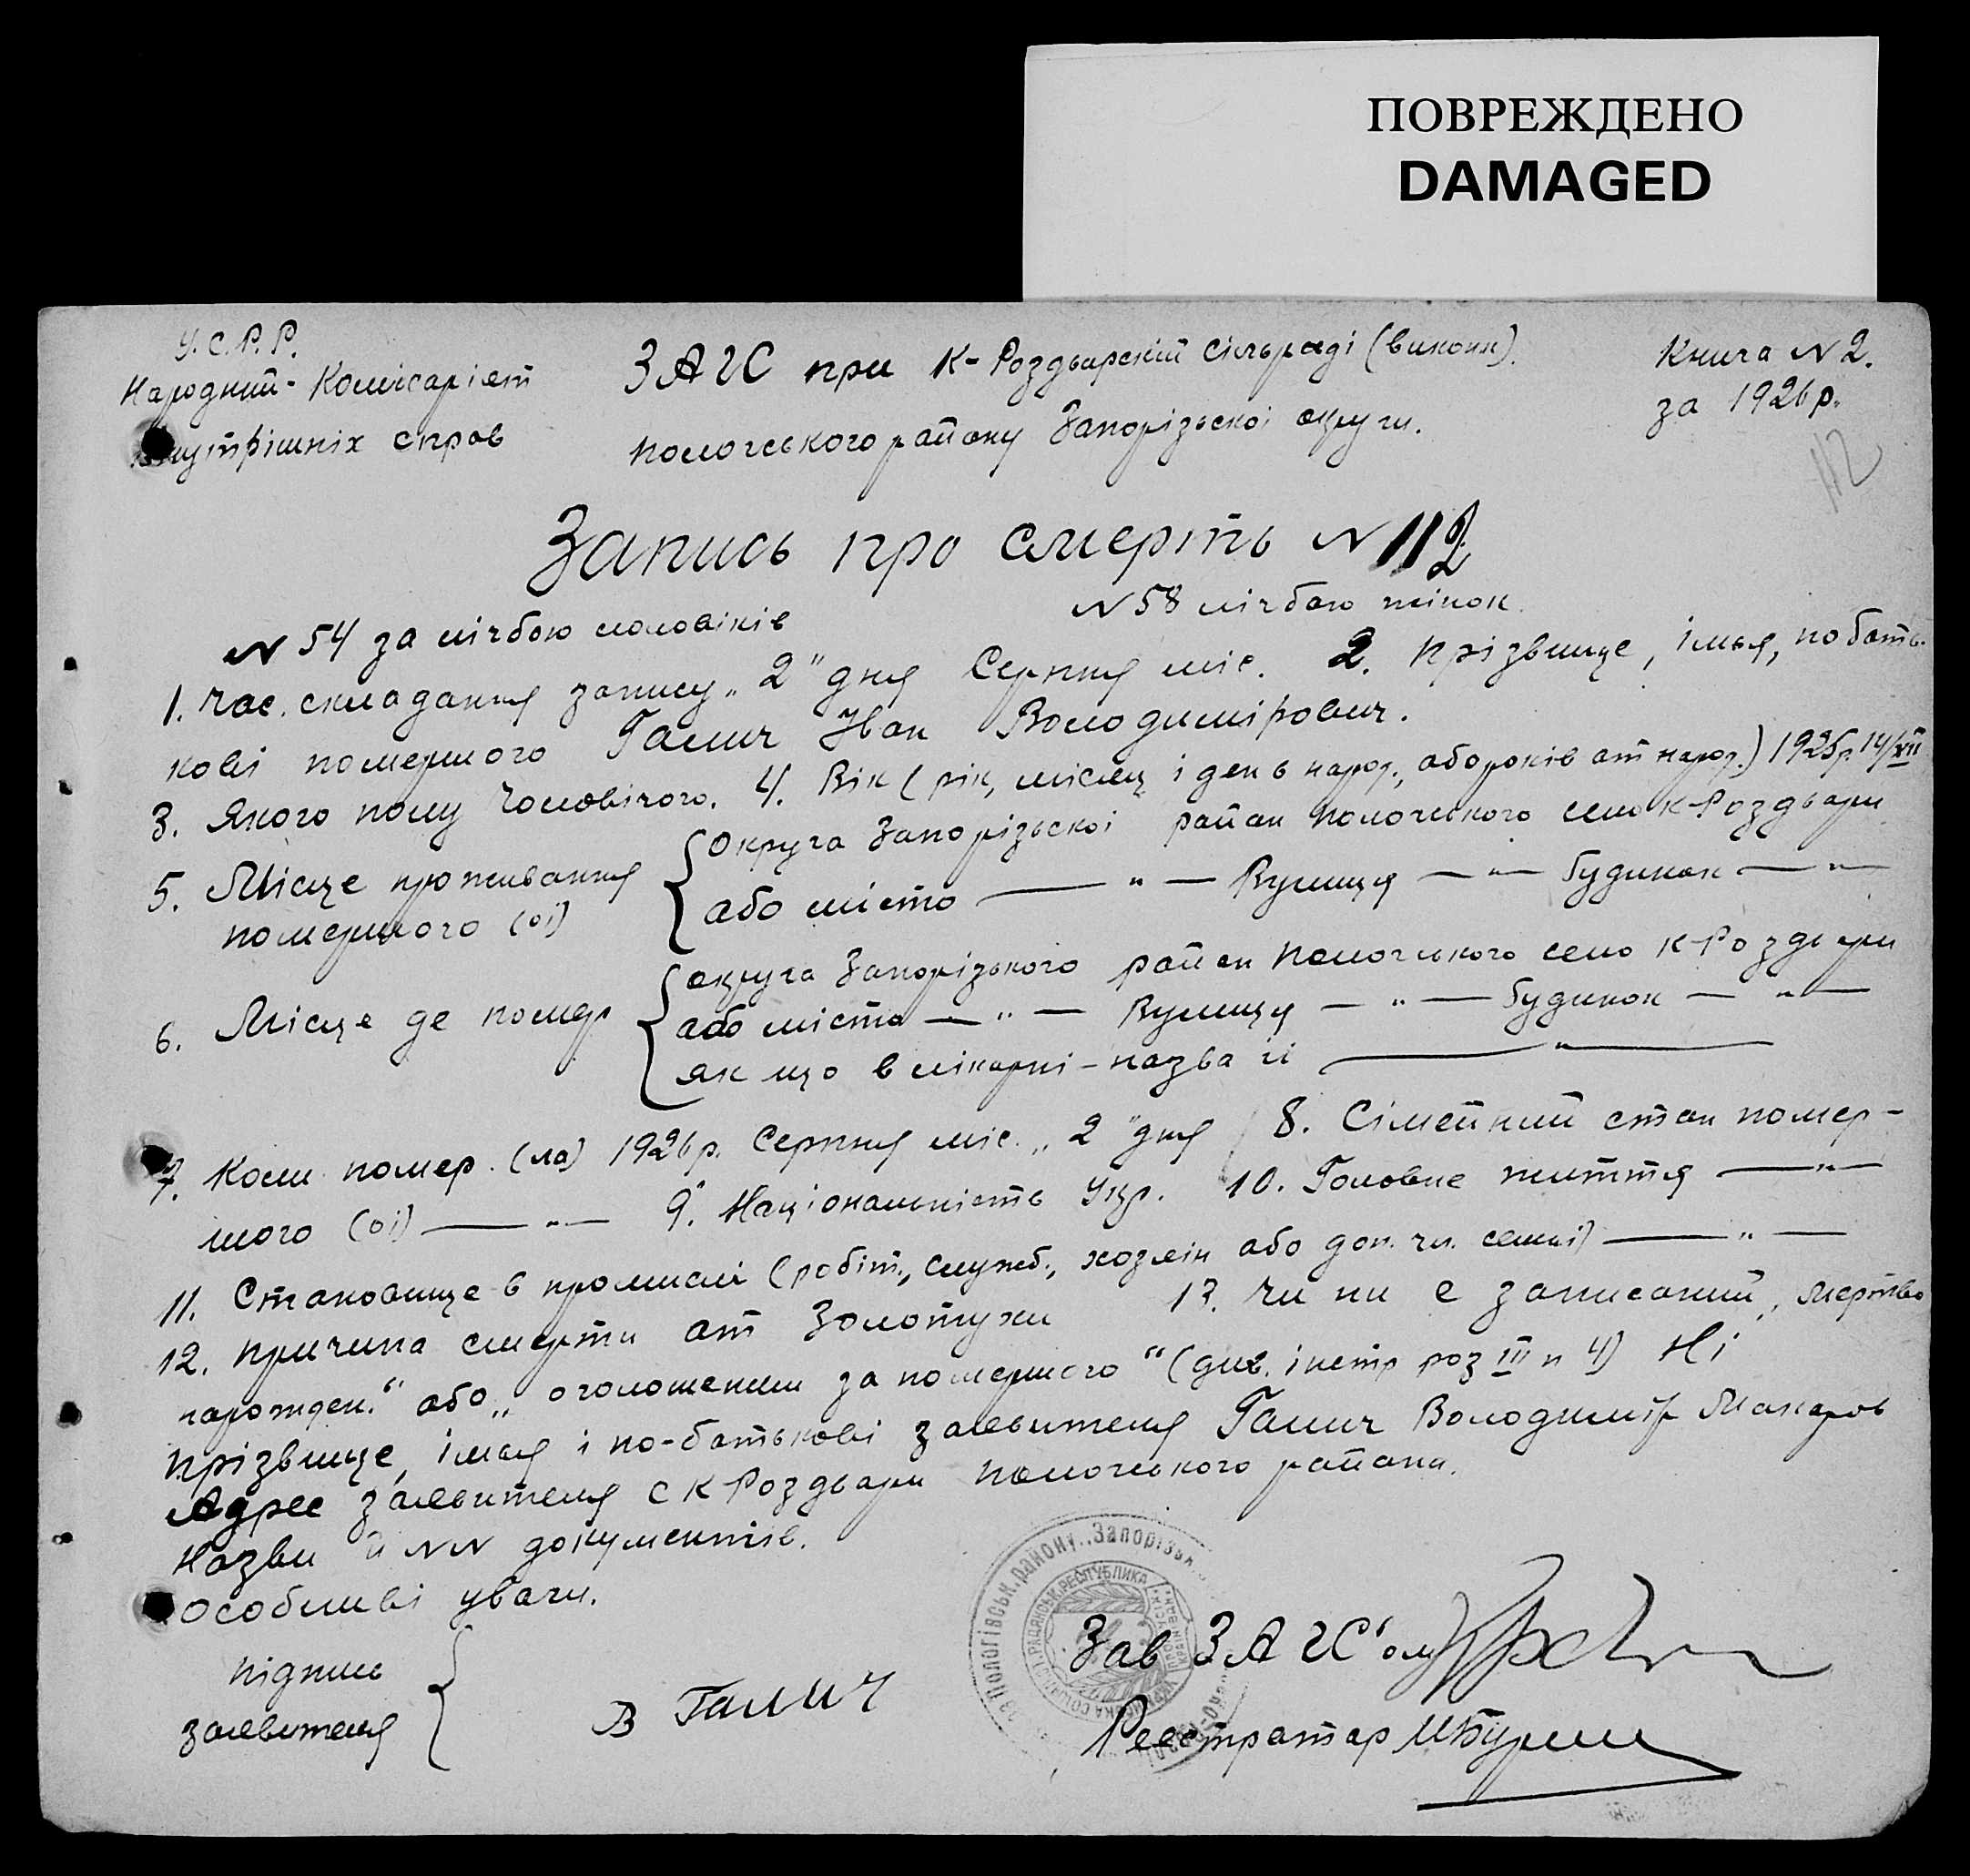 ПОВРЕЖДЕНО
DAMAGED
У.С.Р.Р.
Народний-Комісаріят
внутрішніх справ
ЗАГС при К-Роздорскій сільраді (викони).
Пологського району Запорізьскоі округи.
Книга N 2.
за 1926 р.
112
Запись про смерть N 112
N 54 за лічбою чоловіків
N 58 лічбою жінок.
1. Час. складання запису „2" дня Серпня міс. 2. Прізвище, імья, по бать-
кові помершого Галич Іван Володимірович.
3. Якого полу Чоловічого. 4. Вік (рік, місяц і день народ., або років от народ.) 1925р. 14/VII
5. Місце проживання
помершого (оі)
Округа Запорізьскоі район Пологського село К-Роздори
або місто — " — Вулиця — " — будинок — " —
6. Місце де помер
округа Запорізького район Пологського село К-Роздори
або місто — " — Вулиця — " — будинок — " —
як що в лікарні - назва іі — " —
7. Коли помер. (ла) 1926 р. Серпня міс. „2" дня / 8. Сімейний стан помер-
шого (оі) — " — 9. Національність Укр. 10. Головне життя — " —
11. Становище в промислі (робіт., служб., хозяін або доп. чл. семьі) — " —
12. Причина смерти от Золотухи 13. Чи ни е записаний „мертво
нарожден." або „оголошеним за помершого" (див. інстр роз III п 4) Ні
Прізвище, імья і по-батькові заявителя Галич Володимір Макаров
Адрес заявителя с К Роздори Пологського района.
Назви й NN документів.
Особливі уваги.
Підпись
заявителя
В Галич
Пологівськ. району, Запорізьк
Зав ЗАГС'ом
Реестратор